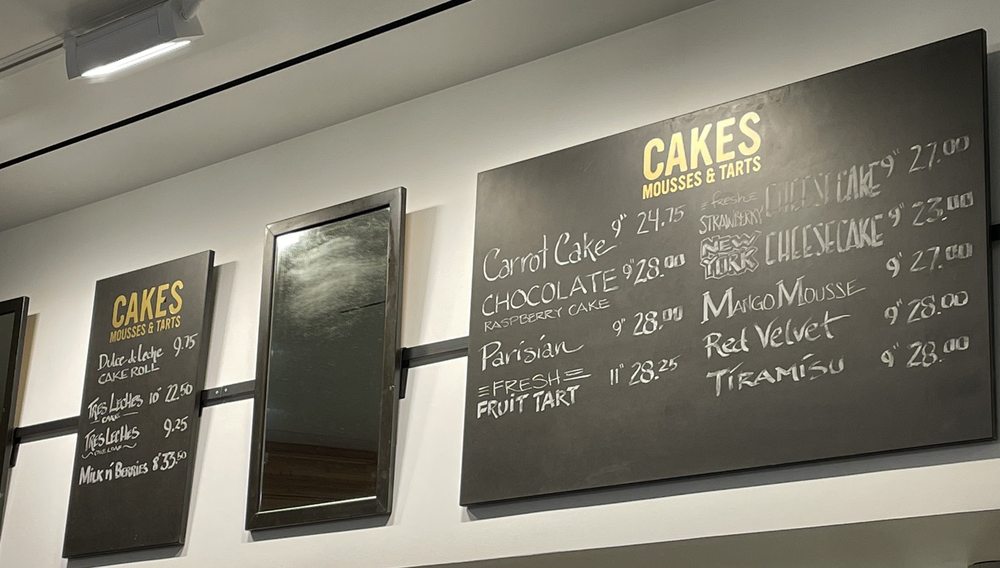 CAKES
MOUSSES & TARTS
Dulce de Leche 9.75
CAKE ROLL
TRES LECHES 10" 22.50
CAKE
TRES LECHES 9.25
MILK n' BERRIES 8" 33.50
CAKES
MOUSSES & TARTS
Carrot Cake 9" 24.75
CHOCOLATE 9" 28.00
RASPBERRY CAKE
Parisian 9" 28.00
FRESH 11" 28.25
FRUIT TART
FRESH
STRAWBERRY CHEESECAKE 9" 27.00
NEW YORK CHEESECAKE 9" 23.00
MANGO MOUSSE 9" 27.00
Red Velvet 9" 28.00
TIRAMISU 9" 28.00